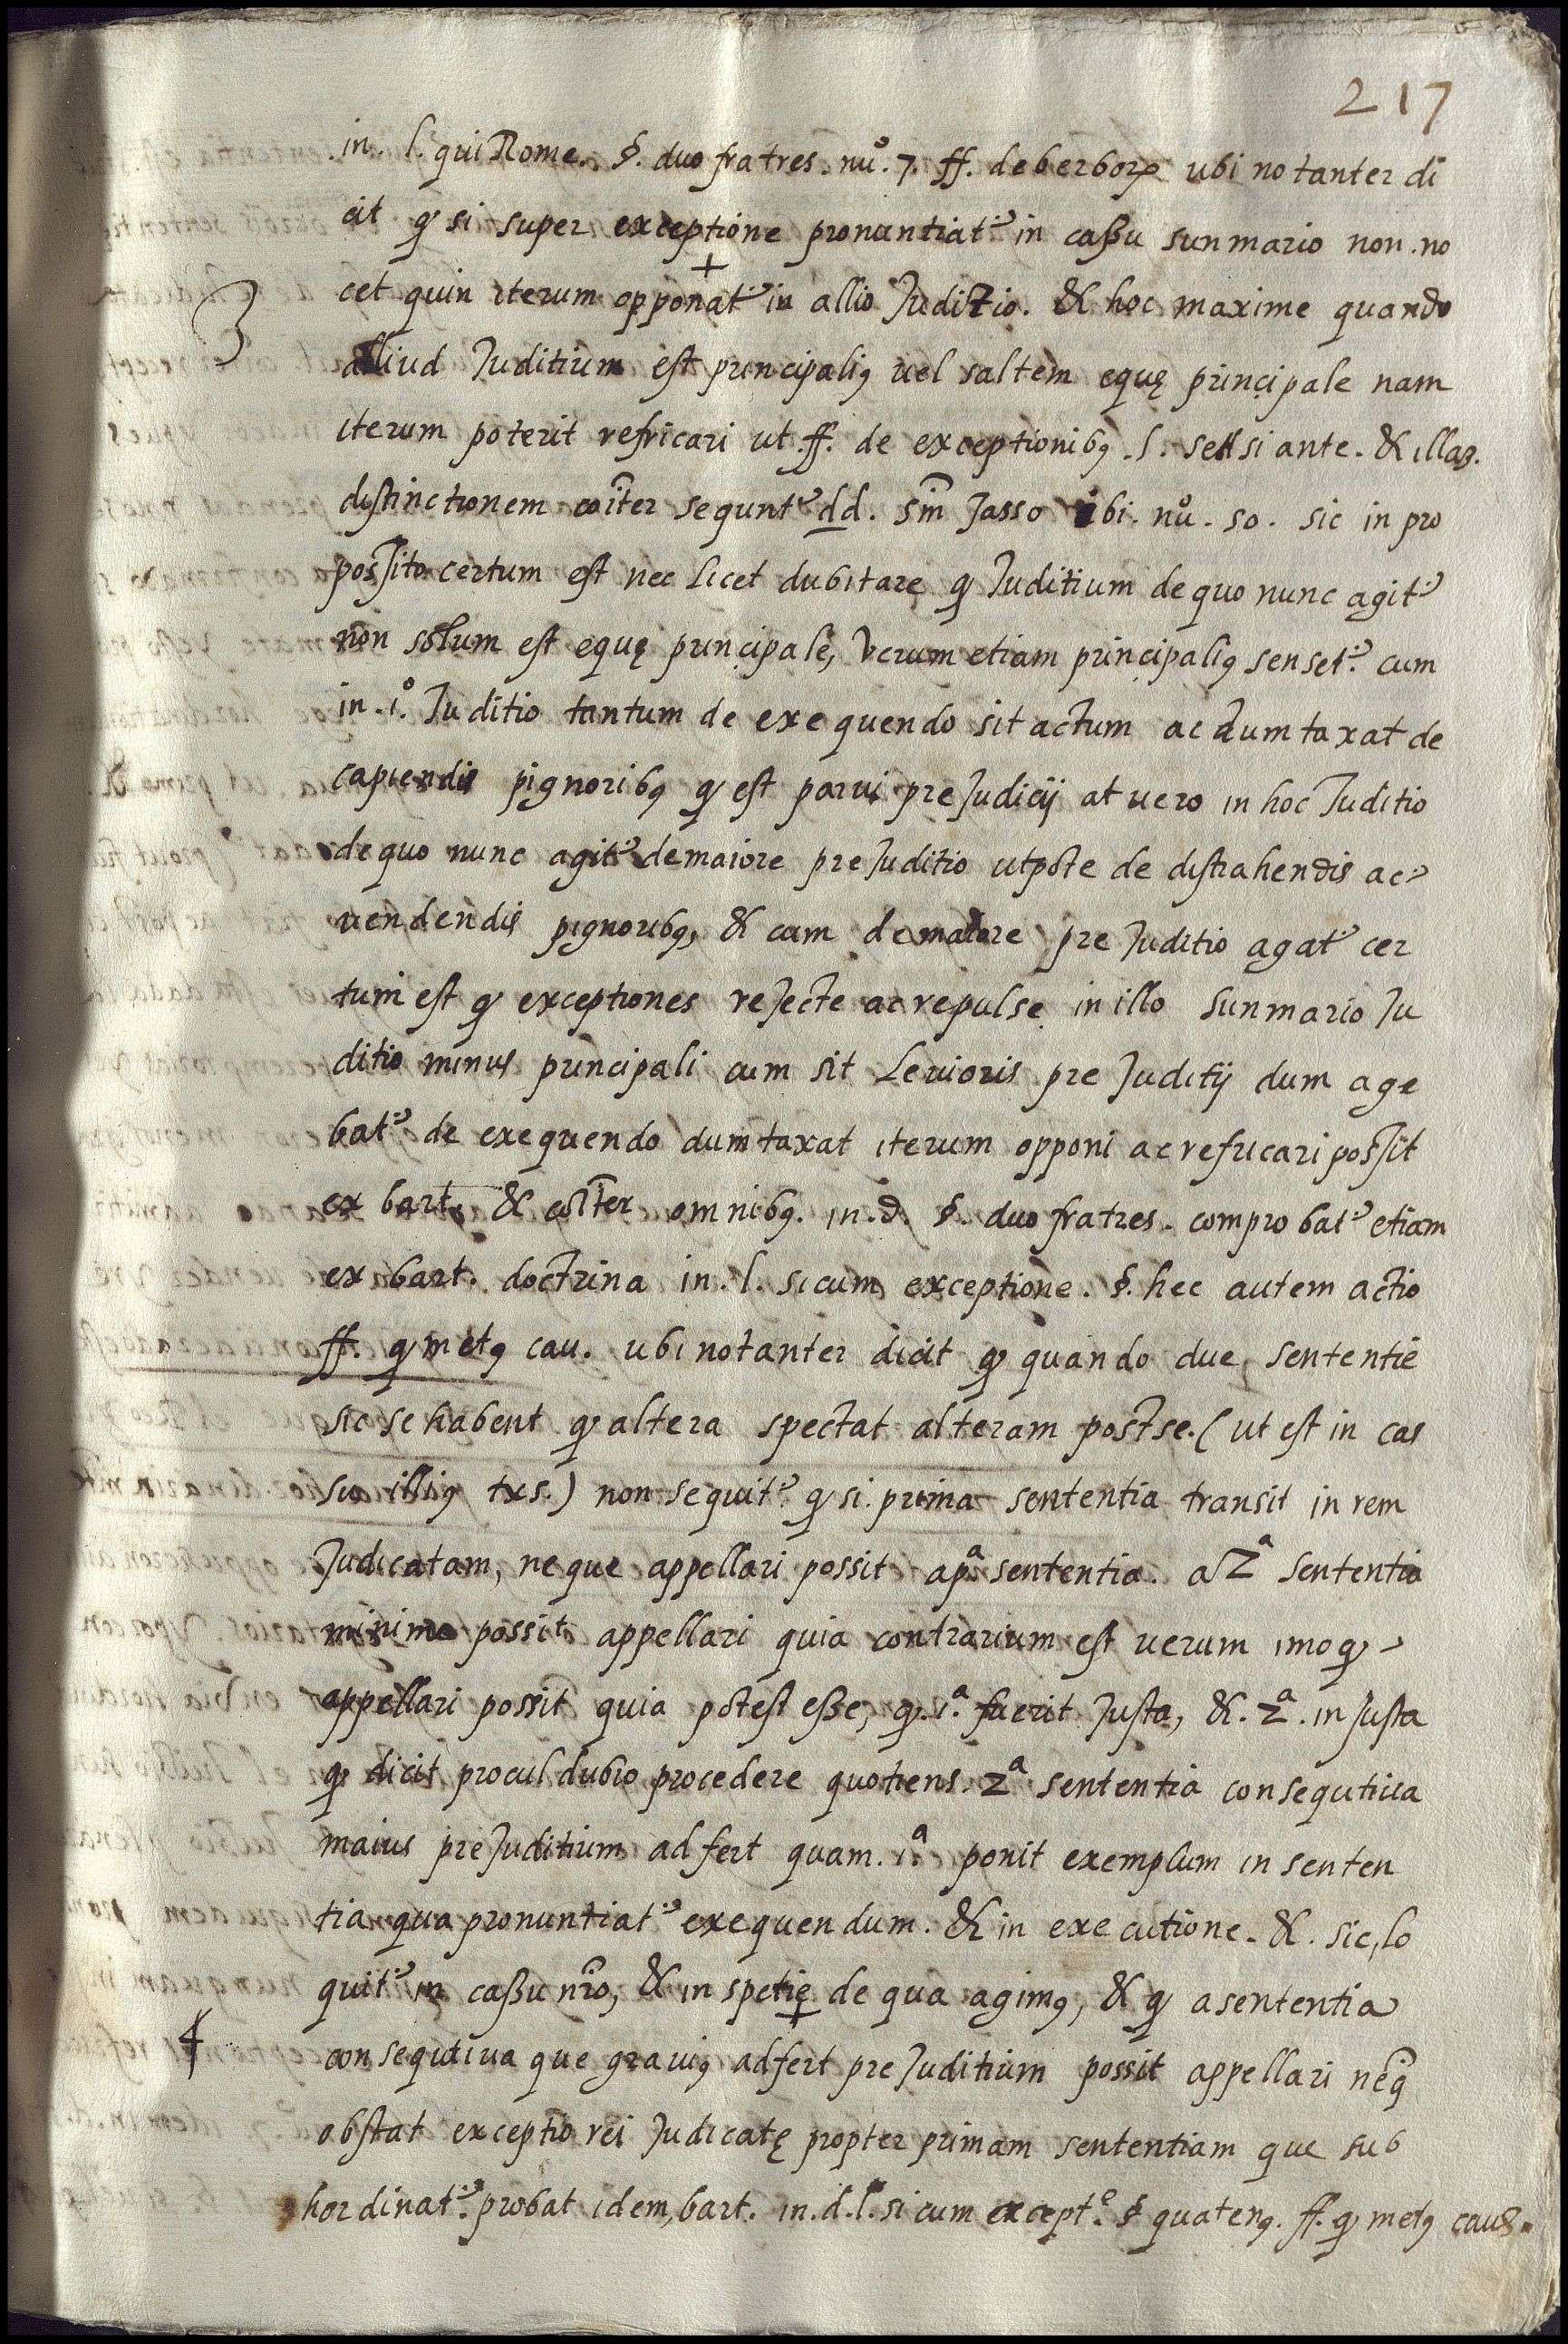 217
in. l. qui Rome. §. duo fratres. nu.º 7. ff. de berborꝝ ubi notanter di
cit ꝙ si super exceptione pronuntiatᷣ in caßu sunmario non no
+
3 cet quin iterum opponatᷣ in allio Juditio. & hoc maxime quando
alliud Juditium est principaliꝰ uel saltem equę principale nam
iterum poterit refricari ut .ff. de exceptionibꝰ .l. sed si ante. & illaȝ.
distinctionem coĩter seguntᷣ dd. scm̃ Jasso ibi. nuº. 50. sic in pro
possito certum est nec licet dubitare ꝙ Juditium de quo nunc agitᷣ
non solum est equę principale, verum etiam principaliꝰ sensetᷣ. cum
in .1.º Juditio tantum de exequendo sit actum ac dumtaxat de
capiendis pignoribꝰ ꝙ est parui preJudicij at uero in hoc Juditio
de quo nunc agitᷣ de maiore preJuditio utpote de distrahendis ac
uendendis pignoribꝰ, & cum de maiore preJuditio agatᷣ cer
tum est ꝙ exceptiones reJecte ac repulse in illo sunmario Ju
ditio minus principali cum sit Leuioris preJuditij dum age
batᷣ de exequendo dumtaxat iterum opponi ac refricari possit
ex bart. & coĩter omnibꝰ. in .d. §. duo fratres. comprobatᷣ etiam
ex bart. doctrina in .l. si cum exceptione. §. hec autem actio
ff. ꝙ metꝰ cau. ubi notanter dicit ꝙ quando due sententie
sic se habent ꝙ altera spectat alteram post se. (ut est in cas
su illiꝰ txs.) non sequitᷣ. ꝙ si prima sententia transit in rem
Judicatam, neque appellari possit a pª sententia. a 2ª sententia
minime possit appellari quia contrarium est uerum imo ꝙ
appellari possit quia potest eße, ꝙ .1.ª fuerit Justa, & .2ª. inJusta
ꝙ dicit procul dubio procedere quotiens. 2ª sententia consequtiua
maius preJuditium adfert quam .1.ª ponit exemplum in senten
tia qua pronuntiatᷣ exequendum. & in executione. & sic lo
quitᷣ in caßu nr̃o, & in spetię de qua agimꝰ, & ꝙ a sententia
+
4 consequtiua que grauiꝰ adfert preJuditium possit appellari neq̃
obstat exceptio rei Judicatę propter primam sententiam que sub
hordinatᷣ. probat idem, bart. in .d. l. si cum except.e § quatenꝰ. ff. ꝙ metꝰ caus.